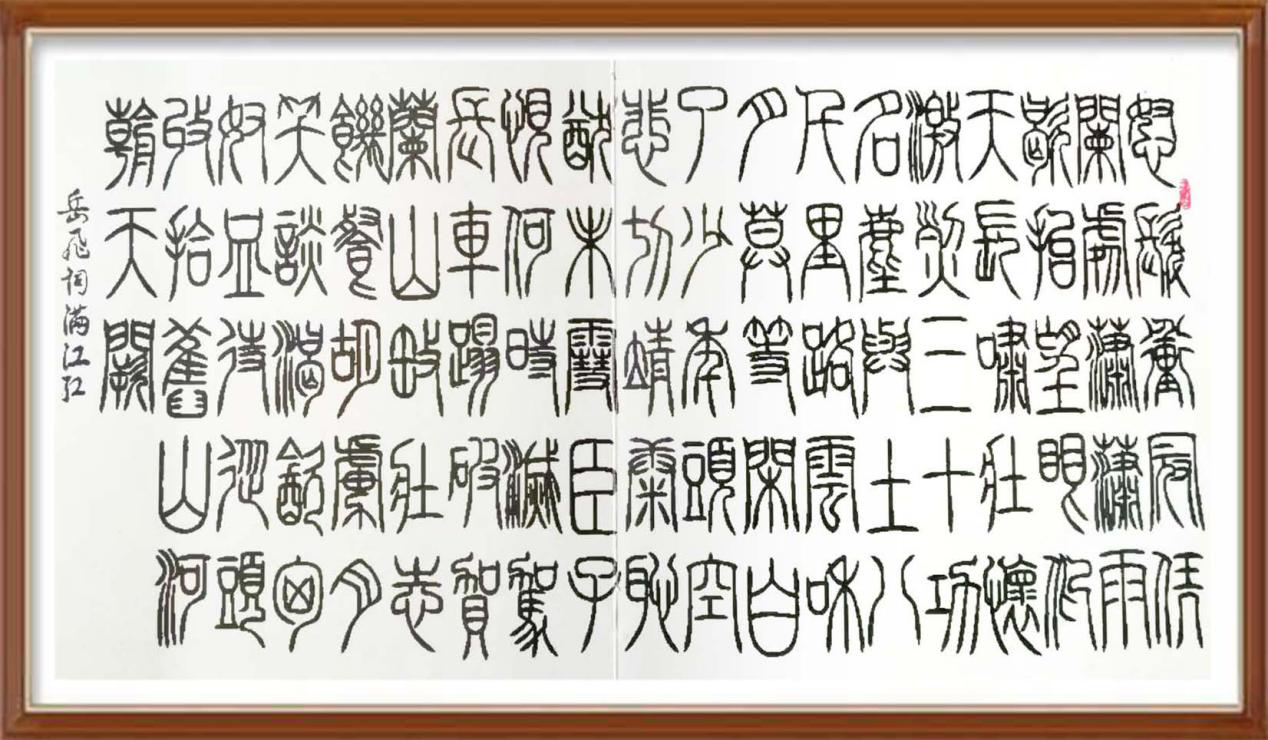 怒髮衝冠凭
闌處瀟瀟雨
歇抬望眼仰
天長嘯壯懷
激烈三十功
名塵與土八
千里路雲和
月莫等閑白
了少年頭空
悲切靖康恥
猷未雪臣子
恨何時滅駕
長車蹋破賀
蘭山缺壯志
饑餐胡虜肉
笑談渴飲匈
奴血待從頭
收拾舊山河
朝天闕
岳飛詞滿江紅